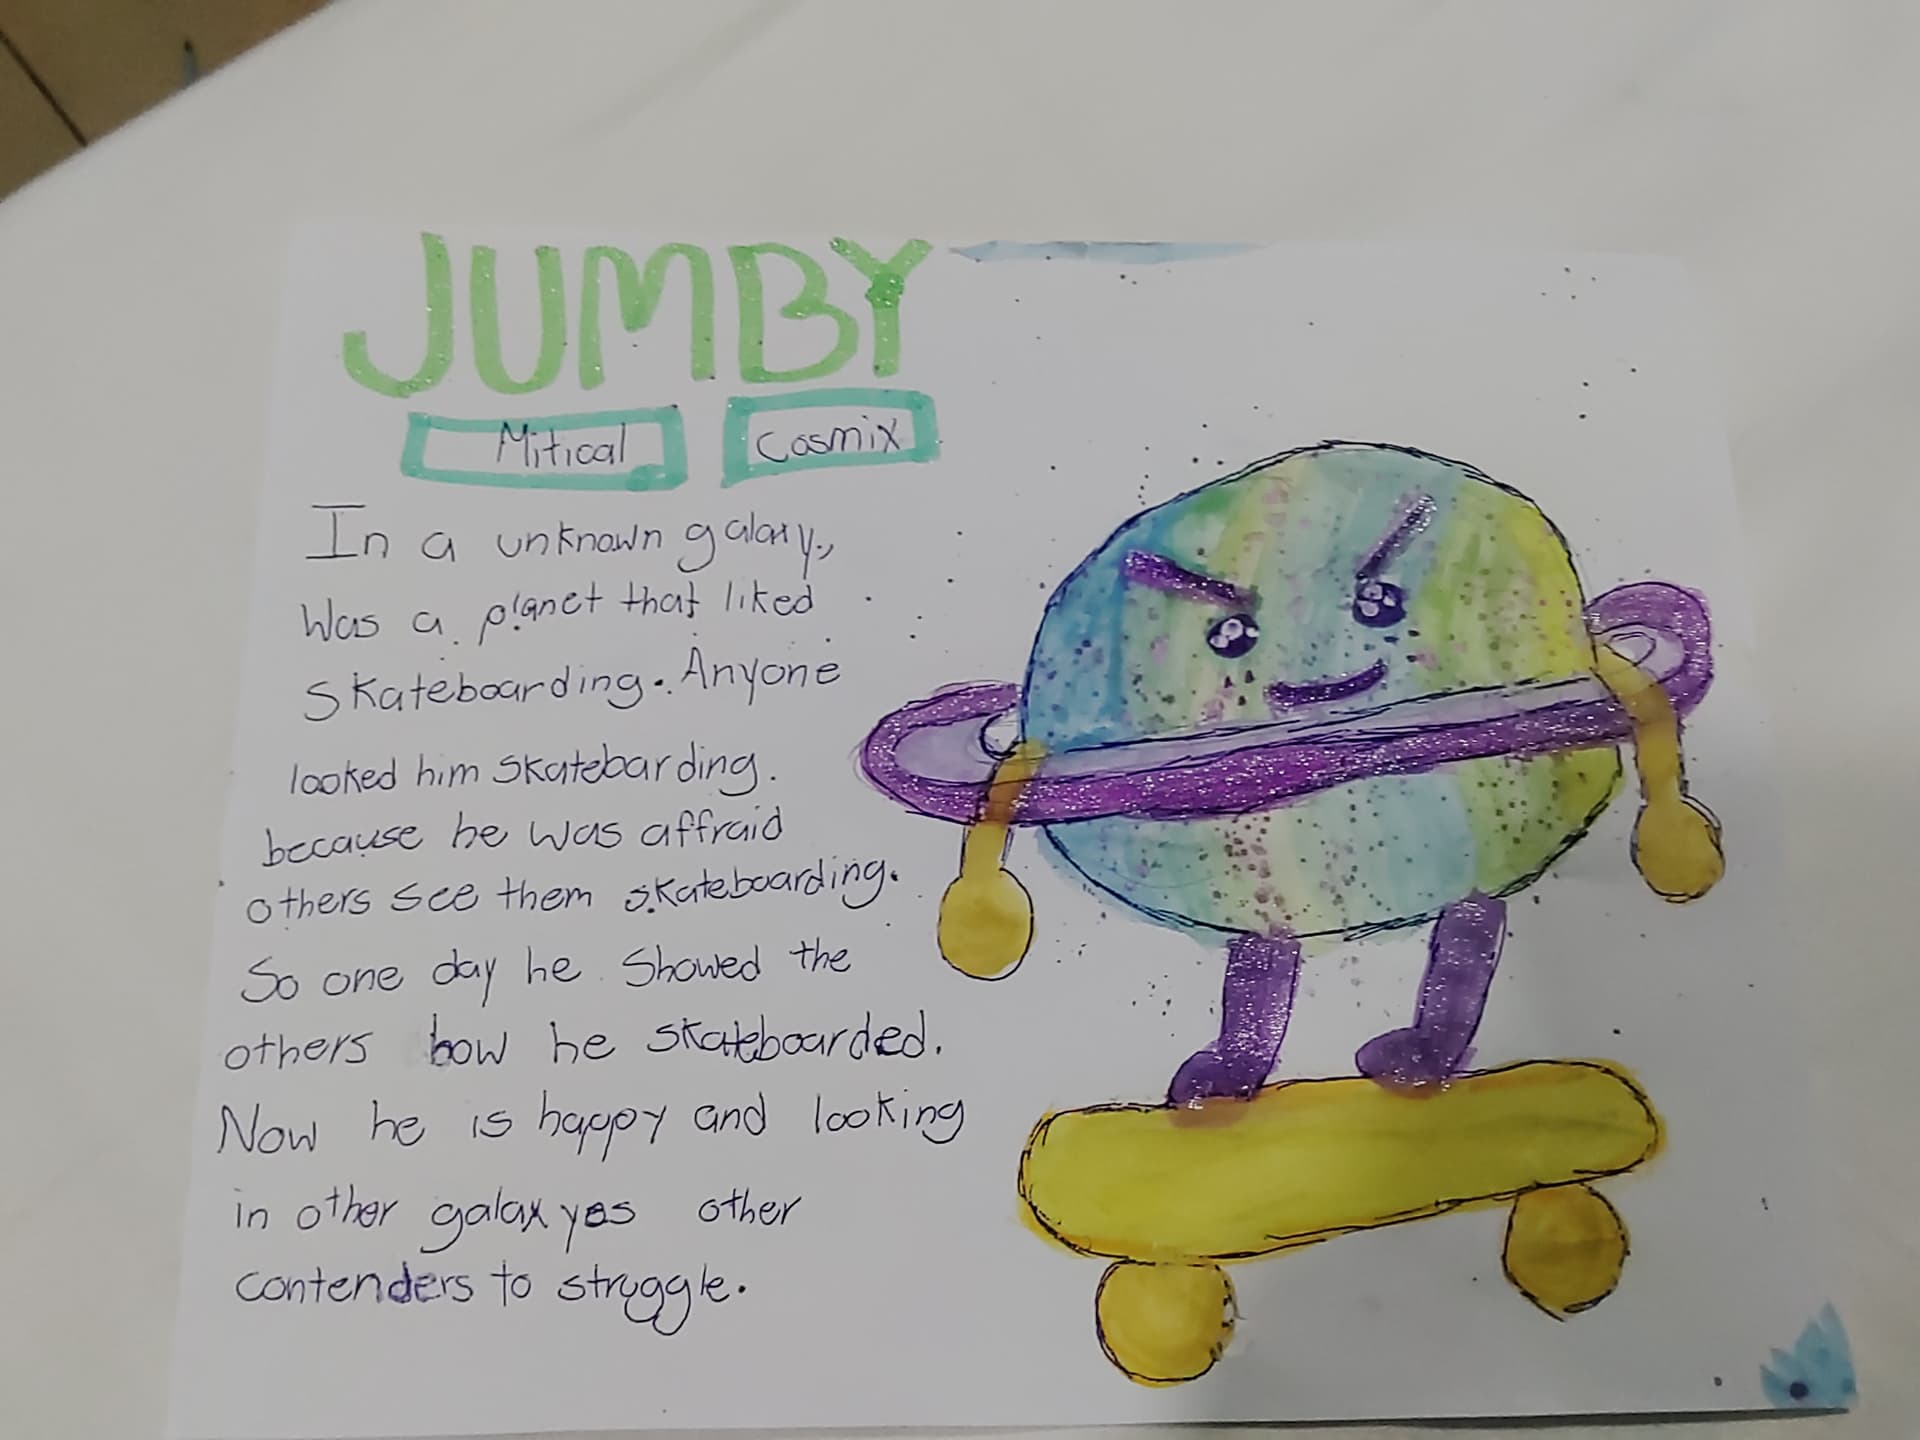 JUMBY
Mitical
Cosmix
In a unknown galaxy.,
Was a. planet that liked
Skateboarding. Anyone
looked him skatebarding.
because he was affraid
others see them skateboarding.
So one day he showed the
others how he skateboarded.
Now he is happy and looking
in other galaxyes other
contenders to struggle.